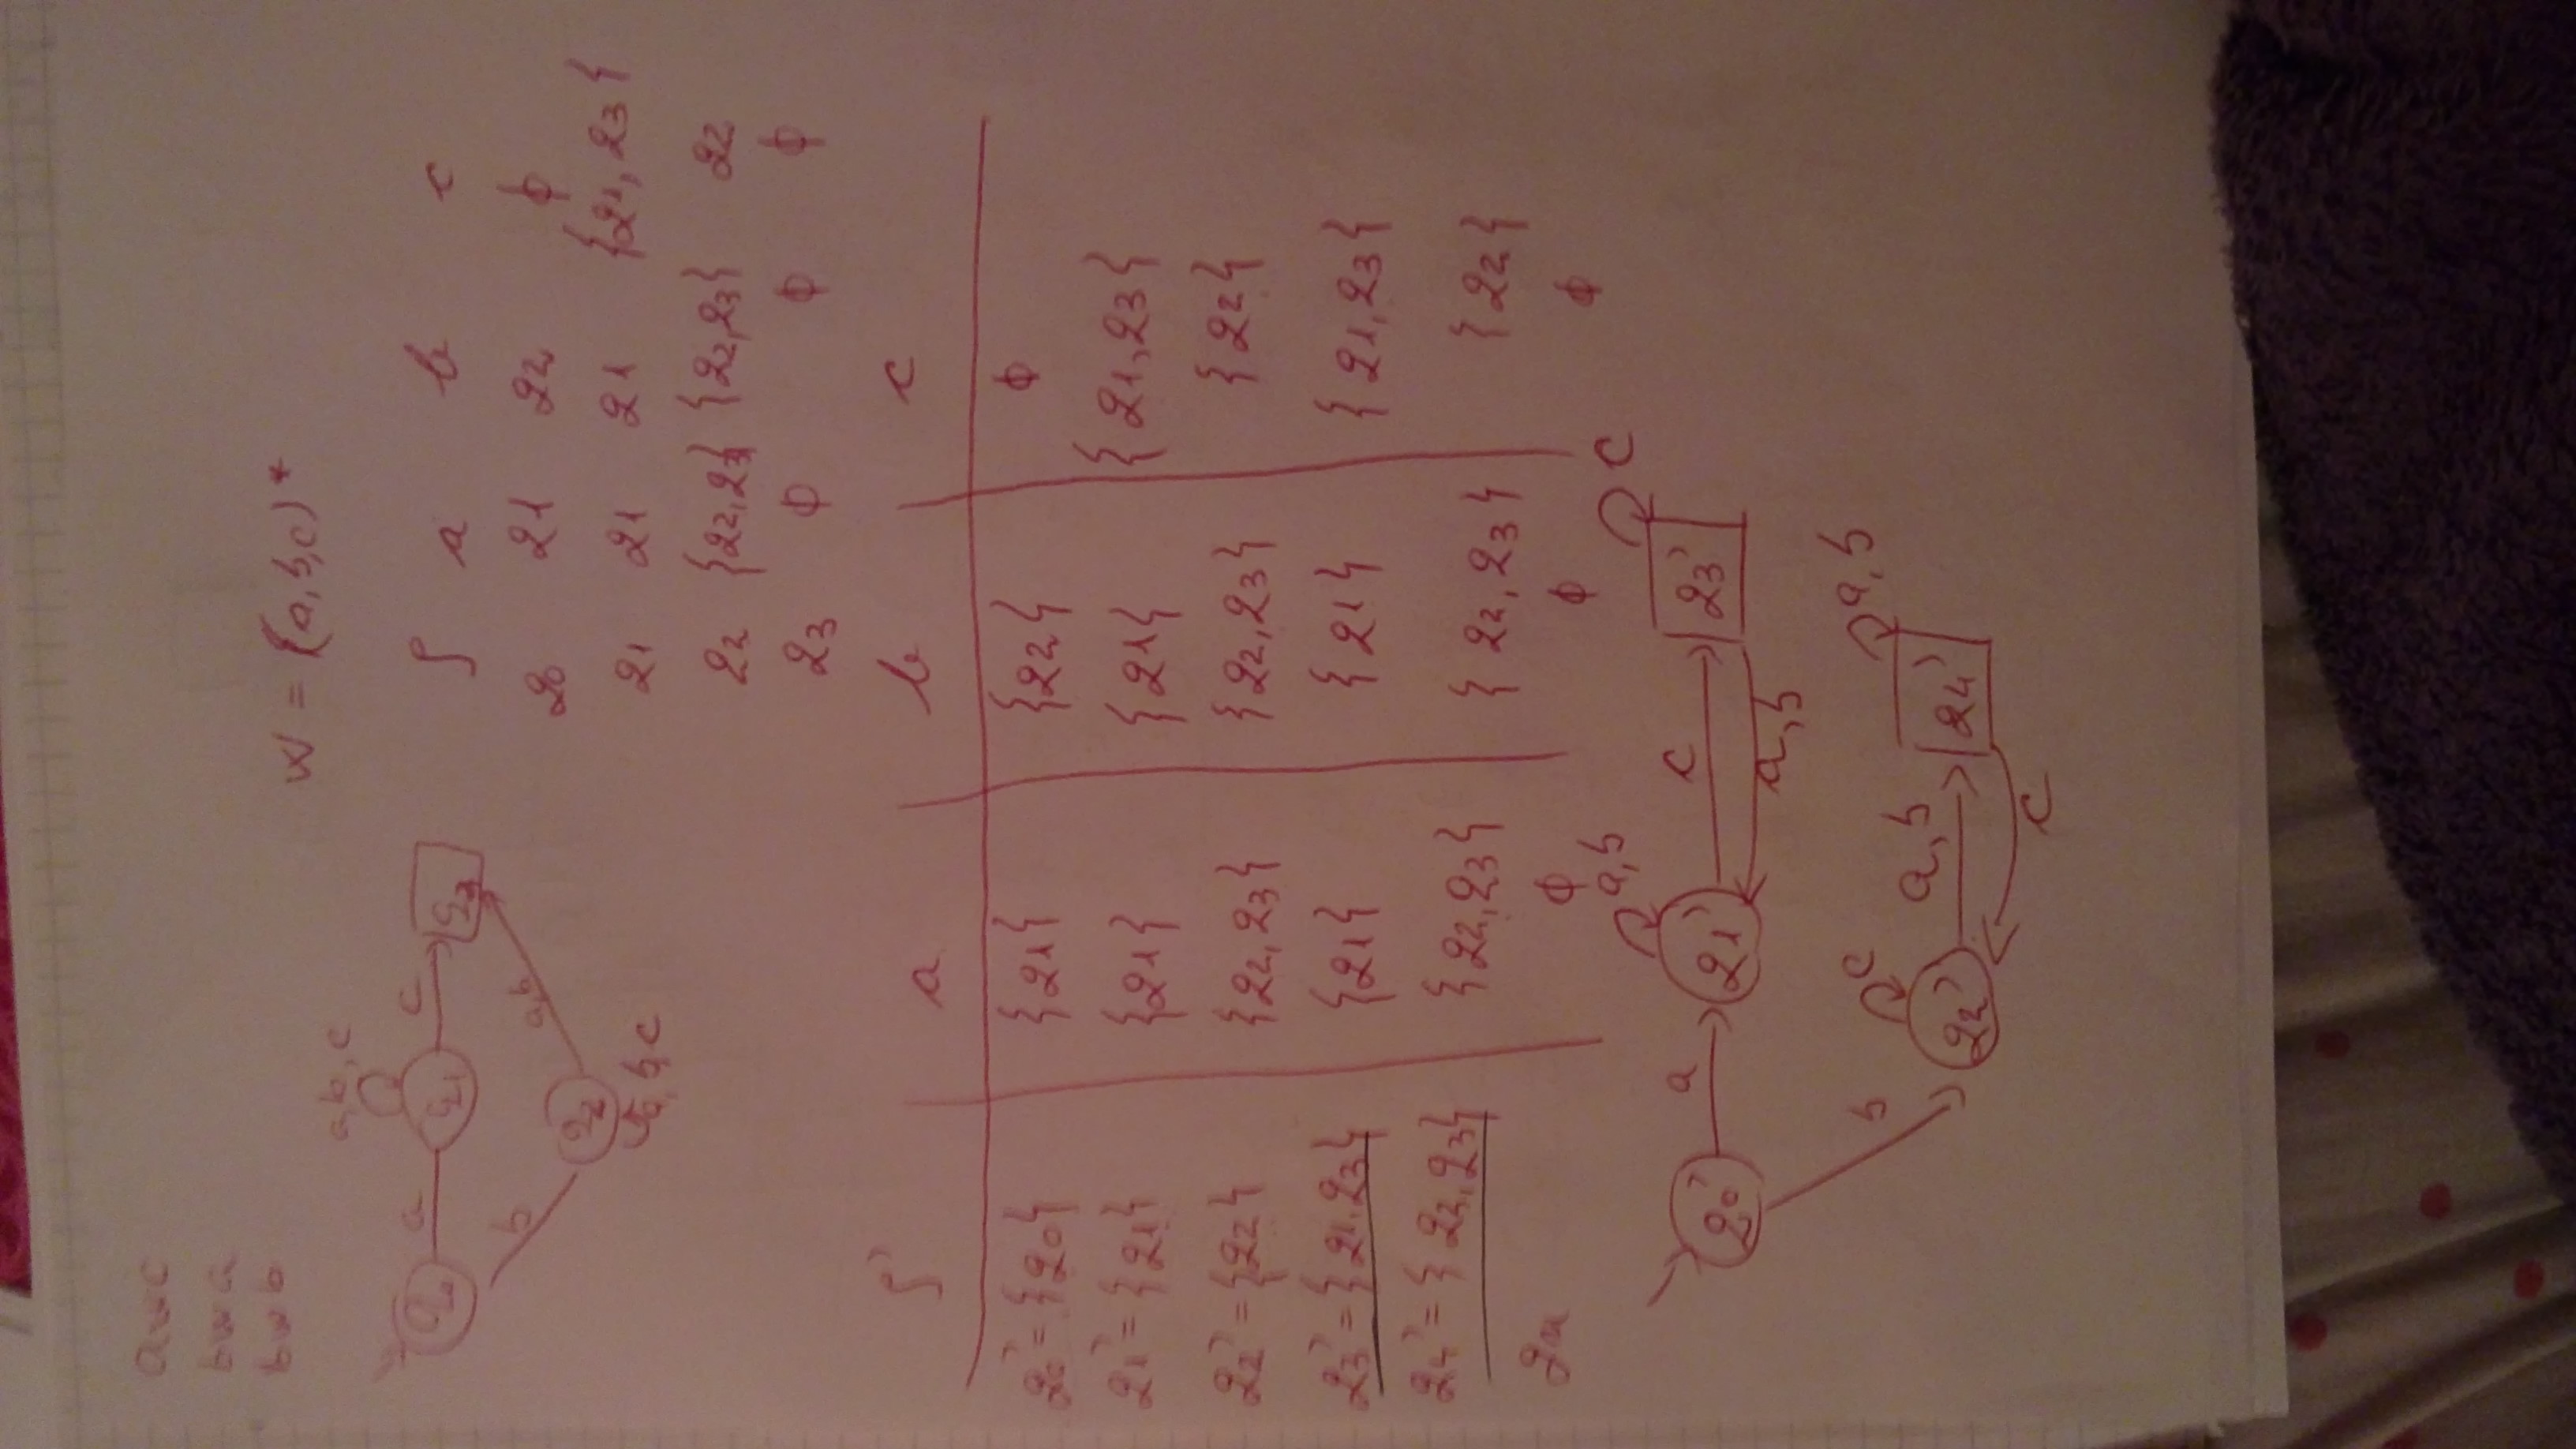 awc
bwa
bwb
w = {(a,b,c)*
a,b,c
q0 a q1 c q3
b q2 a,b
a,b,c
δ a b c
q0 q1 q2 ϕ
q1 q1 q1 {q1,q3}
q2 {q2,q3} {q2,q3} q2
q3 ϕ ϕ ϕ
δ' a b c
q0' = {q0} {q1} {q2} ϕ
q1' = {q1} {q1} {q1} {q1,q3}
q2' = {q2} {q2,q3} {q2,q3} {q2}
q3' = {q1,q3} {q1} {q1} {q1,q3}
q4' = {q2,q3} {q2,q3} {q2,q3} {q2}
ϕ ϕ ϕ
a,b c
q0' a q1' c q3'
a,b
b c a,b
q2' a,b q4'
c